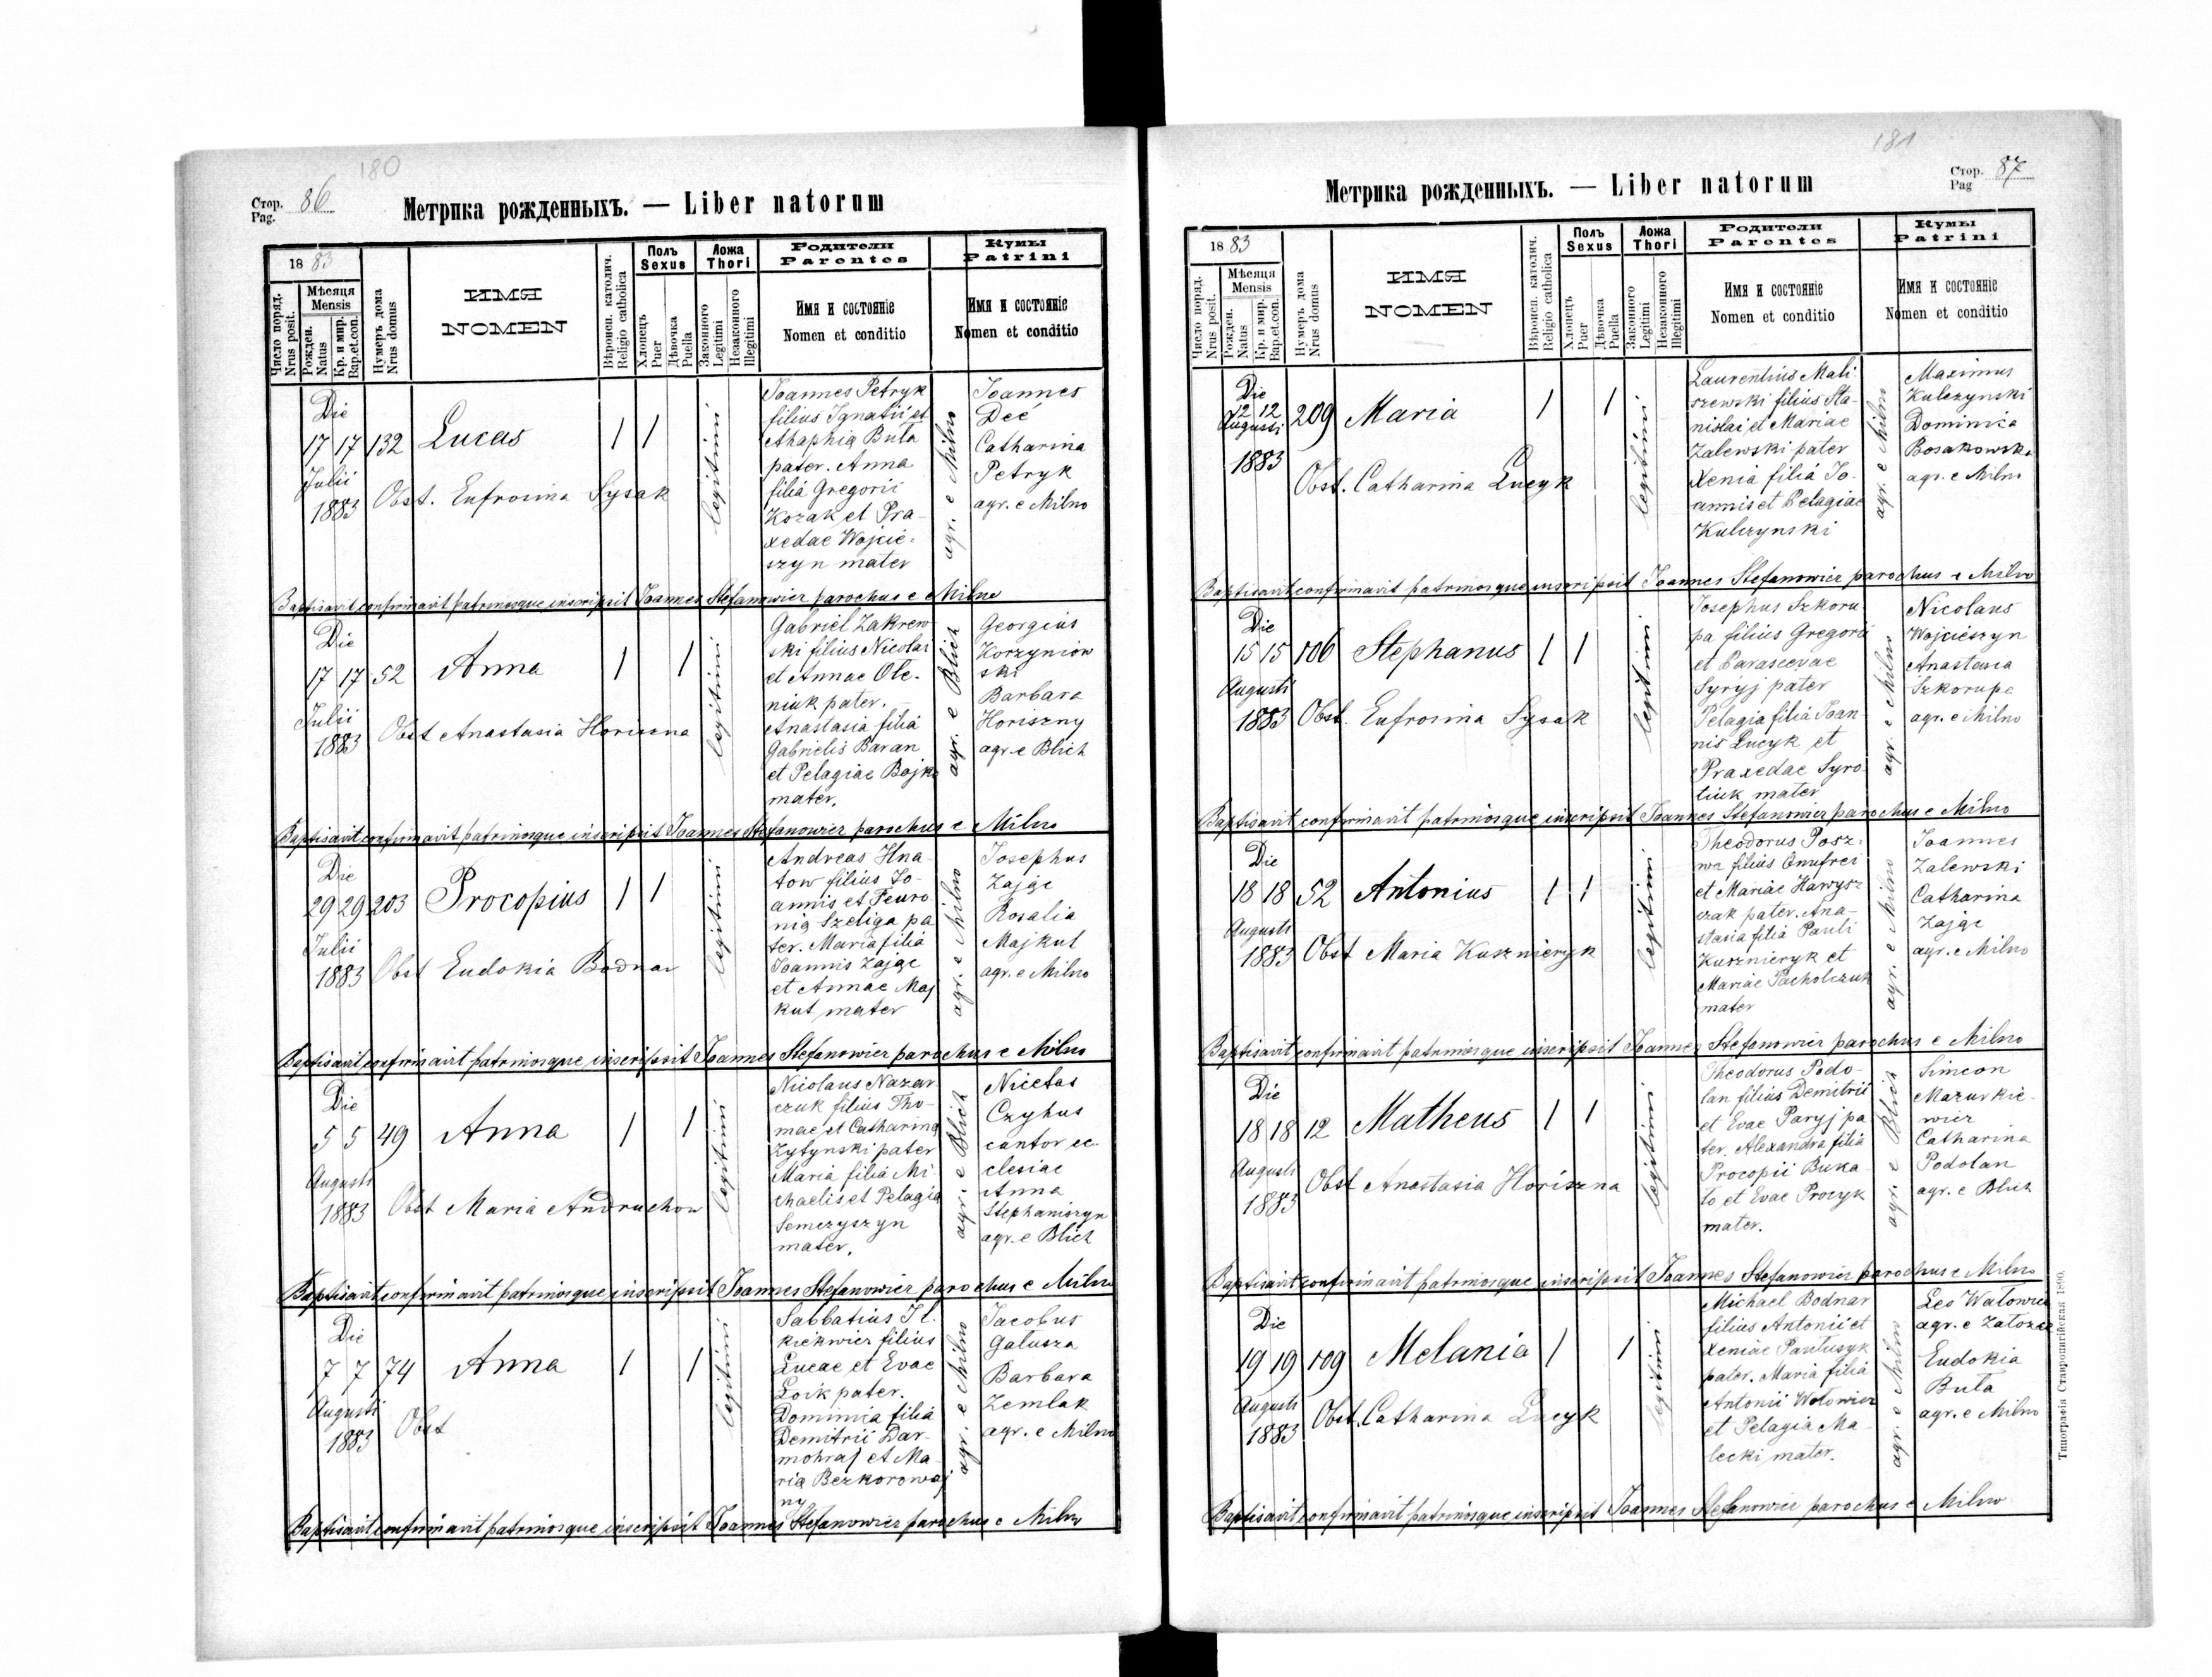 180
Стор. Pag. 86
Метрика рожденныхъ. — Liber natorum
1883
Число поряд. Nrus posit.
Мѣсяця Mensis
Рожден. Natus
Кр. и мир. Bap.et.con.
Нумеръ дома Nrus domus
ИМЯ
NOMEN
Вѣроисп. католич. Religio catholica
Полъ Sexus
Хлопецъ Puer
Дѣвочка Puella
Ложа Thori
Законного Legitimi
Незаконного Illegitimi
Родители Parentes
Имя и состояніе
Nomen et conditio
Кумы Patrini
Имя и состояніе
Nomen et conditio
Die
17 17 132 Lucas 1 1
Julii
1883
Obst. Eufrosina Sysak
legitimi
Joannes Petryk
filius Ignatii et
Ahaphia Buta
pater. Anna
filia Gregorii
Kozak et Pra-
xedae Wojcie-
szyn mater
agr. e Milno
Joannes
Deć
Catharina
Petryk
agr. e Milno
Baptisavit confirmavit patrinosque inscripsit Joannes Stefanowicz parochus e Milno
Die
17 17 52 Anna 1 1
Julii
1883
Obst Anastasia Horiszna
legitimi
Gabriel Zakrew
ski filius Nicolai
et Annae Ole-
niuk pater.
Anastasia filia
Gabrielis Baran
et Pelagiae Bojko
mater.
agr. e Blich
Georgius
Korzyniow
ski
Barbara
Horiszny
agr. e Blich
Baptisavit confirmavit patrinosque inscripsit Joannes Stefanowicz parochus e Milno
Die
29 29 203 Procopius 1 1
Julii
1883
Obst Eudokia Bodnar
legitimi
Andreas Hna-
tow filius Jo-
annis et Feuro
nia Szeliga pa
ter. Maria filia
Joannis Zając
et Annae Maj
kut mater
agr. e Milno
Josephus
Zając
Rosalia
Majkut
agr. e Milno
Baptisavit confirmavit patrinosque inscripsit Joannes Stefanowicz parochus e Milno
Die
5 5 49 Anna 1 1
Augusti
1883
Obst Maria Andruchow
legitimi
Nicolaus Nazar
czuk filius Tho-
mae et Catharina
Zytynski pater
Maria filia Mi-
chaelis et Pelagia
Semczyszyn
mater.
agr. e Blich
Nicetas
Czyhus
cantor ec-
clesiae
Anna
Stephaniszyn
agr. e Blich
Baptisavit confirmavit patrinosque inscripsit Joannes Stefanowicz parochus e Milno
Die
7 7 74 Anna 1 1
Augusti
1883
Obst
legitimi
Sabbatius Il-
kiekwicz filius
Lucae et Evae
Loik pater.
Dominia filia
Demitrii Dar-
mohraj et Ma-
ria Bezkorowaj
ny
agr. e Milno
Jacobus
Galusza
Barbara
Zemlak
agr. e Milno
Baptisavit confirmavit patrinosque inscripsit Joannes Stefanowicz parochus e Milno
181
Стор. Pag 87
Метрика рожденныхъ. — Liber natorum
1883
Число поряд. Nrus posit.
Мѣсяця Mensis
Рожден. Natus
Кр. и мир. Bap.et.con.
Нумеръ дома Nrus domus
ИМЯ
NOMEN
Вѣроисп. католич. Religio catholica
Полъ Sexus
Хлопецъ Puer
Дѣвочка Puella
Ложа Thori
Законного Legitimi
Незаконного Illegitimi
Родители Parentes
Имя и состояніе
Nomen et conditio
Кумы Patrini
Имя и состояніе
Nomen et conditio
Die
12 12 209 Maria 1 1
Augusti
1883
Obst. Catharina Lucyk
legitimi
Laurentius Mali
szewski filius Sta-
nislai et Mariae
Zalewski pater
Xenia filia Jo-
annis et Pelagiae
Kulczynski
agr. e Milno
Maximus
Kulczynski
Dominica
Bosakowska
agr. e Milno
Baptisavit confirmavit patrinosque inscripsit Joannes Stefanowicz parochus e Milno
Die
15 15 106 Stephanus 1 1
Augusti
1883
Obst. Eufrosina Sysak
legitimi
Josephus Szkoru
pa filius Gregorii
et Parascevae
Syryj pater
Pelagia filia Joan-
nis Lucyk et
Praxedae Syro-
tiuk mater
agr. e Milno
Nicolaus
Wojcieszyn
Anastasia
Szkorupa
agr. e Milno
Baptisavit confirmavit patrinosque inscripsit Joannes Stefanowicz parochus e Milno
Die
18 18 52 Antonius 1 1
Augusti
1883
Obst Maria Kusznieryk
legitimi
Theodorus Posz-
wa filius Onufrei
et Mariae Hawysz
czak pater. Ana-
stasia filia Pauli
Kusznieryk et
Mariae Pacholczuk
mater
agr. e Milno
Joannes
Zalewski
Catharina
Zając
agr. e Milno
Baptisavit confirmavit patrinosque inscripsit Joannes Stefanowicz parochus e Milno
Die
18 18 12 Matheus 1 1
Augusti
1883
Obst Anastasia Horiszna
legitimi
Theodorus Podo-
lan filius Demitrii
et Evae Paryj pa
ter. Alexandra filia
Procopii Buka-
to et Evae Procyk
mater.
agr. e Blich
Simeon
Mazurkie-
wicz
Catharina
Podolan
agr. e Blich
Baptisavit confirmavit patrinosque inscripsit Joannes Stefanowicz parochus e Milno
Die
19 19 109 Melania 1 1
Augusti
1883
Obst. Catharina Lucyk
legitimi
Michael Bodnar
filius Antonii et
Xeniae Pantusyk
pater. Maria filia
Antonii Wotowicz
et Pelagia Ma-
lecki mater.
agr. e Milno
Leo Watowicz
agr. e Zatozce
Eudokia
Buta
agr. e Milno
Baptisavit confirmavit patrinosque inscripsit Joannes Stefanowicz parochus e Milno
Типографія Ставропигійская 1890.